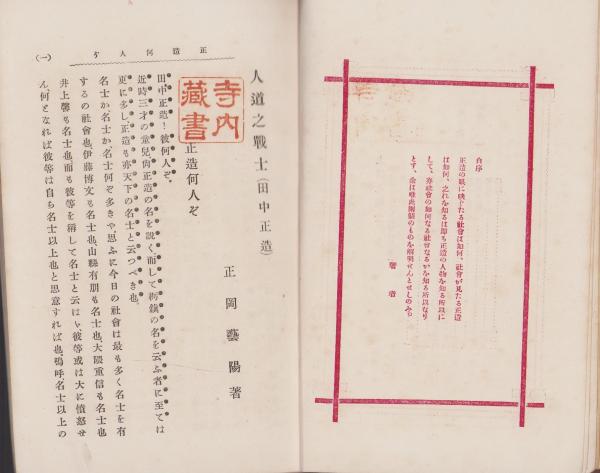 自序
正造の眼に映じたる社會は如何、社會が見たる正造
は如何、之れを知るは即ち正造の人物を知る所以に
して、亦社會の如何なる社會なるかを知る所以なり
とす、余は唯此兩個のものを解明せんとせしのみ。
著者
人道之戰士(田中正造)
正岡藝陽著
寺内
藏書
正造何人ぞ
田中正造!彼何人ぞ。
近時三才の童兒尚正造の名を説く而して鑛の名を云ふ者に至ては
更に多し、正造も亦天下の名士と云つべき也。
名士か、名士か名士何ぞ多きや、思ふに今日の社會は最も多く名士を有
するの社會也、伊藤博文も名士也、山縣有朋も名士也、大隈重信も名士也
井上馨も名士也、而も彼等を稱して名士と云はゞ、彼等或は大に憤怒せ
ん、何となれば彼等は自ら名士以上也と思意すれば也、嗚呼名士以上の
正造何人ぞ
(一)